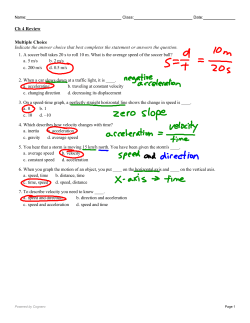 Name: Class: Date:
Ch 4 Review
Multiple Choice
Indicate the answer choice that best completes the statement or answers the question.
1. A soccer ball takes 20 s to roll 10 m. What is the average speed of the soccer ball?
a. 5 m/s b. 2 m/s
c. 200 m/s d. 0.5 m/s
S = d/t = 10m/20s
2. When a car slows down at a traffic light, it is ____.
a. acceleration b. traveling at constant velocity
c. changing direction d. decreasing its displacement
negative acceleration
3. On a speed-time graph, a perfectly straight horizontal line shows the change in speed is ____.
a. 0 b. 1
c. 10 d. -10
zero slope
4. Which describes how velocity changes with time?
a. inertia b. acceleration
c. gravity d. average speed
acceleration = velocity/time
5. You hear that a storm is moving 15 km/h north. You have been given the storm's ____.
a. average speed b. velocity
c. constant speed d. acceleration
speed and direction
6. When you graph the motion of an object, you put ____ on the horizontal axis and ____ on the vertical axis.
a. speed, time b. distance, time
c. time, speed d. speed, distance
X-axis → time
7. To describe velocity you need to know ____.
a. speed and direction b. direction and acceleration
c. speed and acceleration d. speed and time
Powered by Cognero Page 1